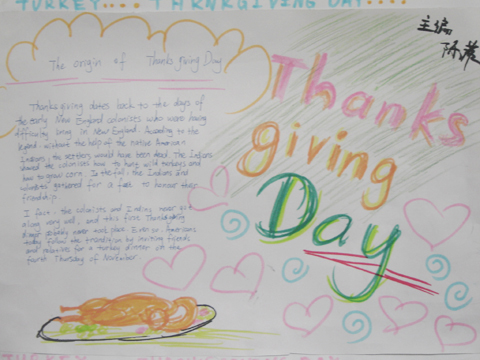 TURKEY.... THANKGIVING DAY....
主编
The origin of Thanksgiving Day
Thanks
giving
Day
Thanksgiving dates back to the days of
the early New England colonises who were having
difficulty living in New England. According to the
legend, without the help of the native American
Indians, the settlers would have been dead. The Indians
showed the colonists how to hunt wild turkeys and
how to grow corn. In the fall, the Indians and
gathered for a to honour their
friendship.
I fact, the colonists and Indians never got
along very well, and this first Thanksgiving
dinner probably never took place. Even so, Americans
today follow the tradition by inviting friends
and relatives for a turkey dinner on the
fourth Thursday of November.